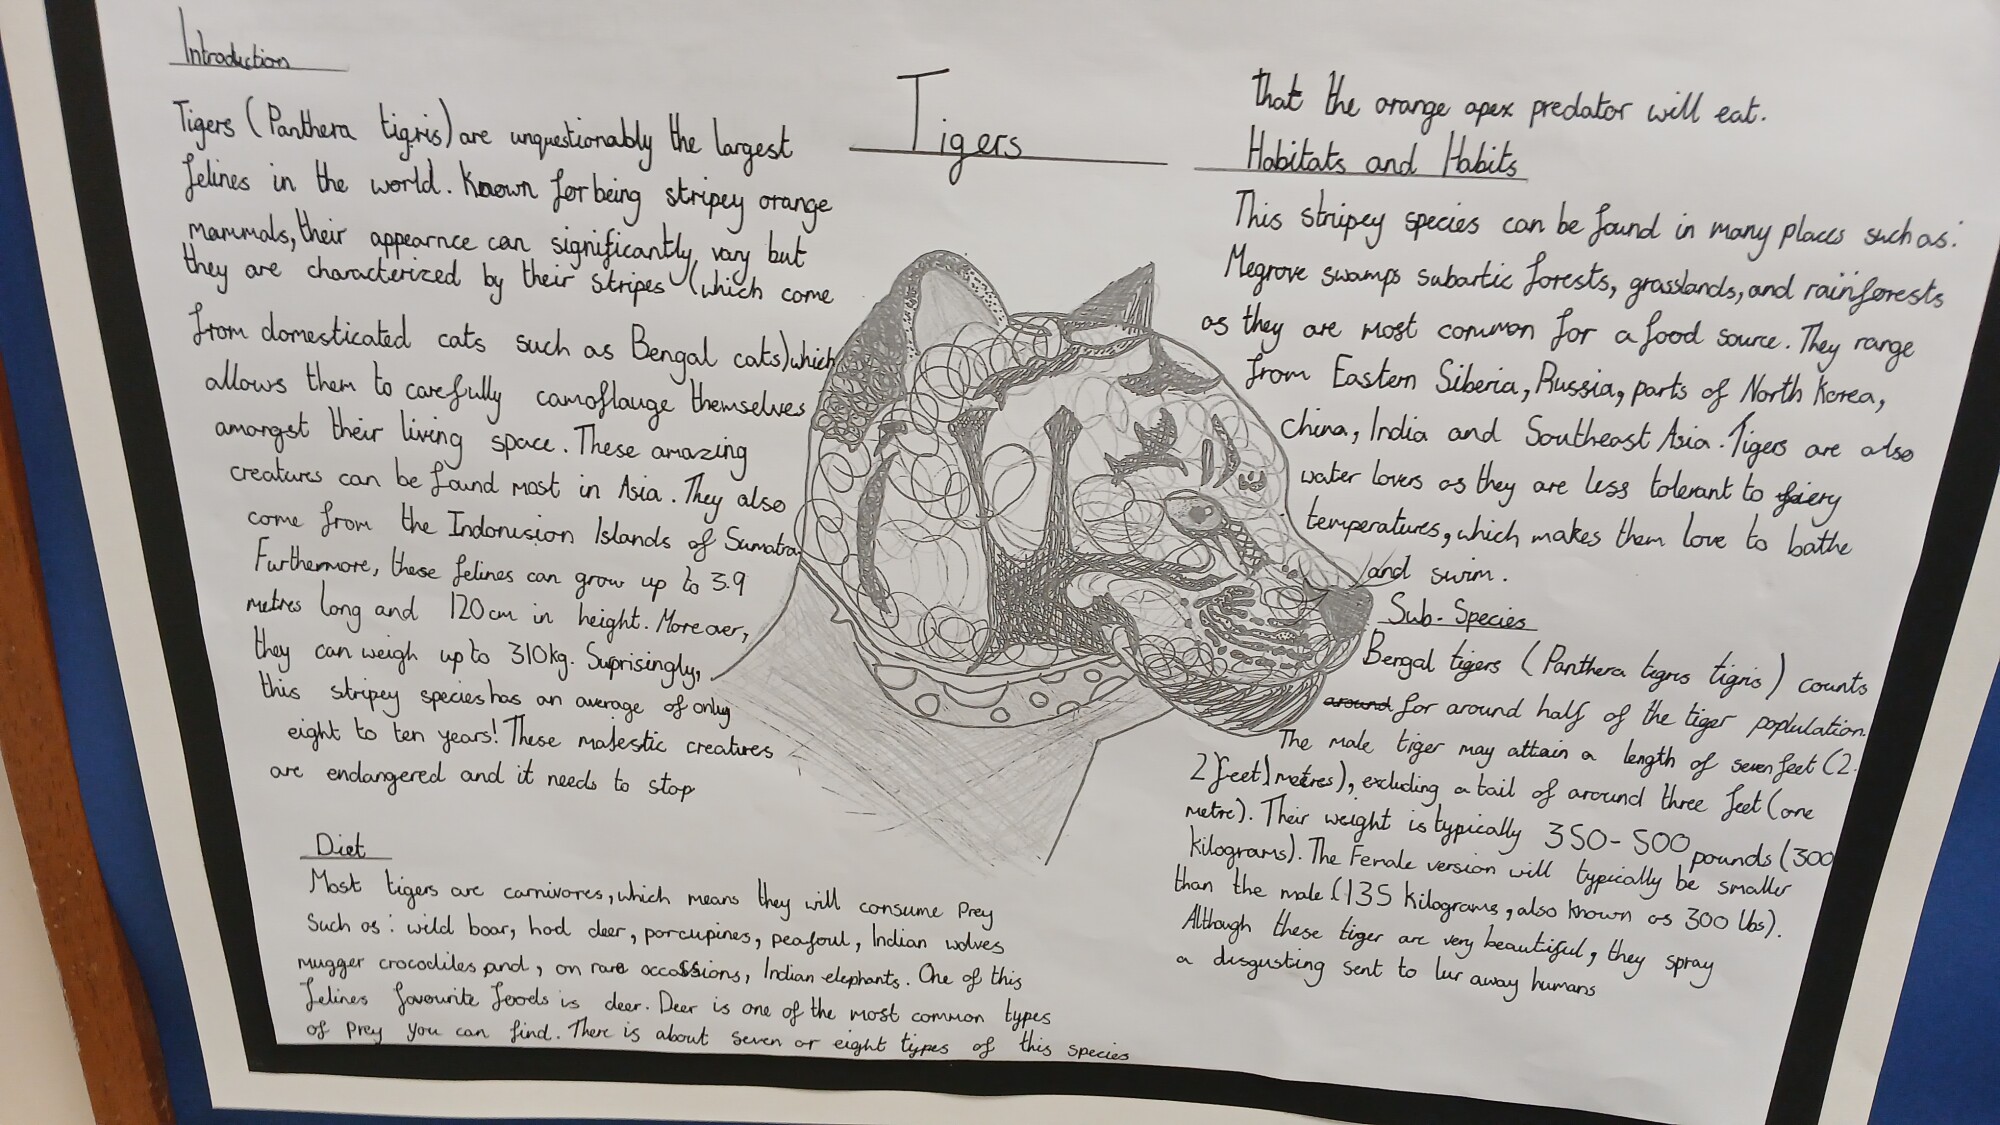 Tigers
Introduction
Tigers (Panthera tigris) are unquestionably the largest
felines in the world. Known for being stripey orange
mammals, their appearnce can significantly vary but
they are characterized by their stripes (which come
from domesticated cats such as Bengal cats) which
allows them to carefully camoflauge themselves
amongst their living space. These amazing
creatures can be found most in Asia. They also
come from the Indonusion Islands of Sumatra
Furthermore, these felines can grow up to 3.9
metres long and 120cm in height. Moreover,
they can weigh up to 310kg. Suprisingly,
this stripey species has an average of only
eight to ten years! These majestic creatures
are endangered and it needs to stop
Diet
Most tigers are carnivores, which means they will consume Prey
Such as: wild boar, hod deer, porcupines, peafoul, Indian wolves
mugger crocodiles and, on rare occassions, Indian elephants. One of this
felines favourite foods is deer. Deer is one of the most common types
of Prey you can find. There is about seven or eight types of this species
that the orange apex predator will eat.
Habitats and Habits
This stripey species can be found in many places such as:
Megrove swamps subartic forests, grasslands, and rainforests
as they are most common for a food source. They range
from Eastern Siberia, Russia, parts of North Korea,
china, India and Southeast Asia. Tigers are also
water lovers as they are less tolerant to fiery
temperatures, which makes them love to bathe
and swim.
Sub-Species
Bengal tigers (Panthera tegris tigris) counts
around for around half of the tiger poplulation.
The male tiger may attain a length of seven feet (2.
2) feet) metres), excluding a tail of around three feet (one
metre). Their weight is typically 350-500 pounds (300
kilograms). The Female version will typically be smaller
than the male (135 kilograms, also known as 300 lbs).
Although these tiger are very beautiful, they spray
a disgusting sent to lur away humans